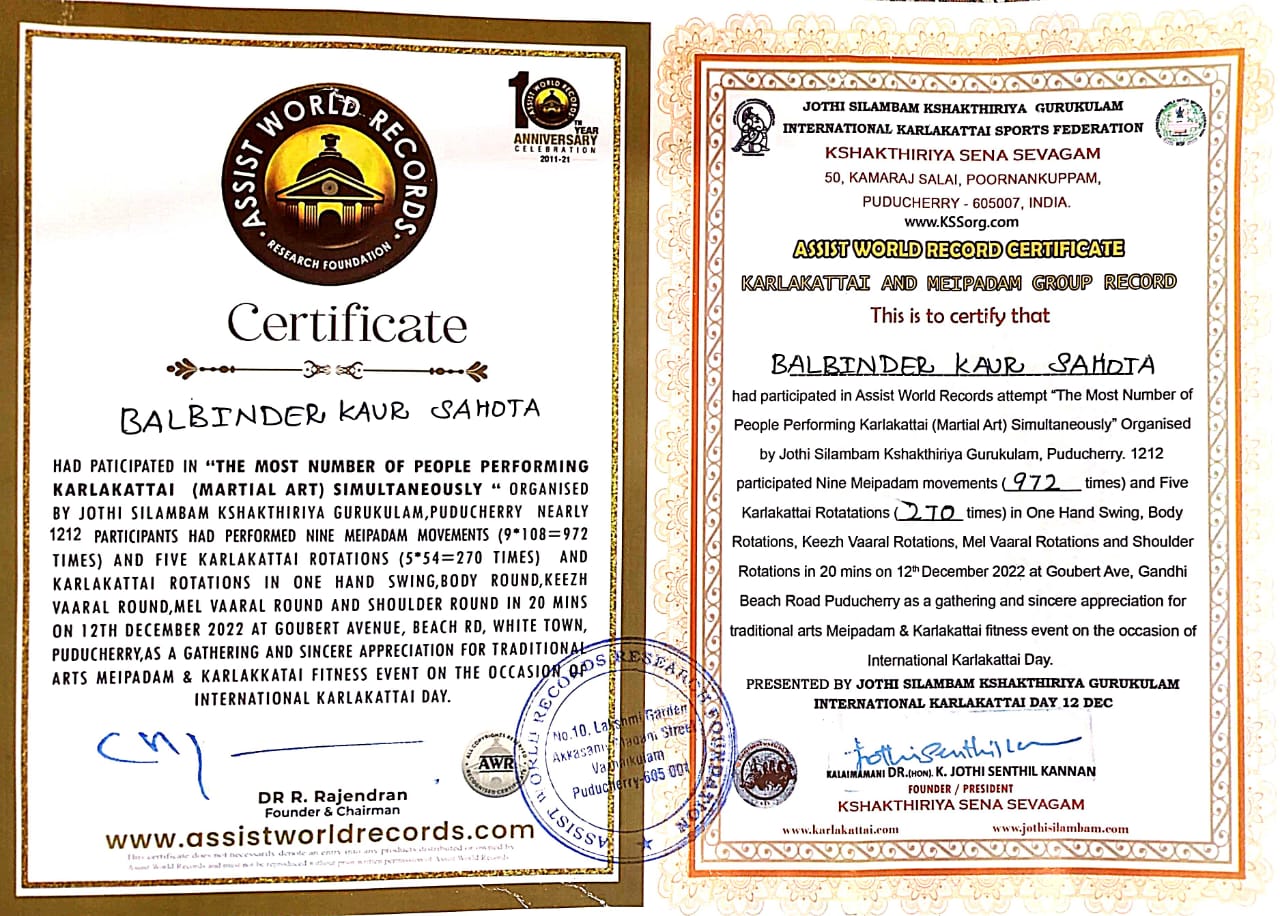 ASSIST WORLD RECORDS
RESEARCH FOUNDATION
10
TH
YEAR
ANNIVERSARY
CELEBRATION
2011-21
Certificate
BALBINDER KAUR SAHOTA
HAD PATICIPATED IN “THE MOST NUMBER OF PEOPLE PERFORMING
KARLAKATTAI (MARTIAL ART) SIMULTANEOUSLY “ ORGANISED
BY JOTHI SILAMBAM KSHAKTHIRIYA GURUKULAM,PUDUCHERRY NEARLY
1212 PARTICIPANTS HAD PERFORMED NINE MEIPADAM MOVEMENTS (9*108=972
TIMES) AND FIVE KARLAKATTAI ROTATIONS (5*54=270 TIMES) AND
KARLAKATTAI ROTATIONS IN ONE HAND SWING,BODY ROUND,KEEZH
VAARAL ROUND,MEL VAARAL ROUND AND SHOULDER ROUND IN 20 MINS
ON 12TH DECEMBER 2022 AT GOUBERT AVENUE, BEACH RD, WHITE TOWN,
PUDUCHERRY,AS A GATHERING AND SINCERE APPRECIATION FOR TRADITIONAL
ARTS MEIPADAM & KARLAKKATAI FITNESS EVENT ON THE OCCASION OF
INTERNATIONAL KARLAKATTAI DAY.
DR R. Rajendran
Founder & Chairman
www.assistworldrecords.com
This certificate does not necessarily denote an entry into any products distributed or owned by
Assist World Records and must not be reproduced without prior written permission of Assist World Records
AWR
ASSIST WORLD RECORDS RESEARCH FOUNDATION
No.10, Lakshmi Garden
Street
Puducherry-605 001
JOTHI SILAMBAM KSHAKTHIRIYA GURUKULAM
INTERNATIONAL KARLAKATTAI SPORTS FEDERATION
KSHAKTHIRIYA SENA SEVAGAM
50, KAMARAJ SALAI, POORNANKUPPAM,
PUDUCHERRY - 605007, INDIA.
www.KSSorg.com
ASSIST WORLD RECORD CERTIFICATE
KARLAKATTAI AND MEIPADAM GROUP RECORD
This is to certify that
BALBINDER KAUR SAHOTA
had participated in Assist World Records attempt “The Most Number of
People Performing Karlakattai (Martial Art) Simultaneously” Organised
by Jothi Silambam Kshakthiriya Gurukulam, Puducherry. 1212
participated Nine Meipadam movements (972 times) and Five
Karlakattai Rotatations (270 times) in One Hand Swing, Body
Rotations, Keezh Vaaral Rotations, Mel Vaaral Rotations and Shoulder
Rotations in 20 mins on 12th December 2022 at Goubert Ave, Gandhi
Beach Road Puducherry as a gathering and sincere appreciation for
traditional arts Meipadam & Karlakattai fitness event on the occasion of
International Karlakattai Day.
PRESENTED BY JOTHI SILAMBAM KSHAKTHIRIYA GURUKULAM
INTERNATIONAL KARLAKATTAI DAY 12 DEC
KALAIMAMANI DR.(HON). K. JOTHI SENTHIL KANNAN
FOUNDER / PRESIDENT
KSHAKTHIRIYA SENA SEVAGAM
www.karlakattai.com www.jothisilambam.com